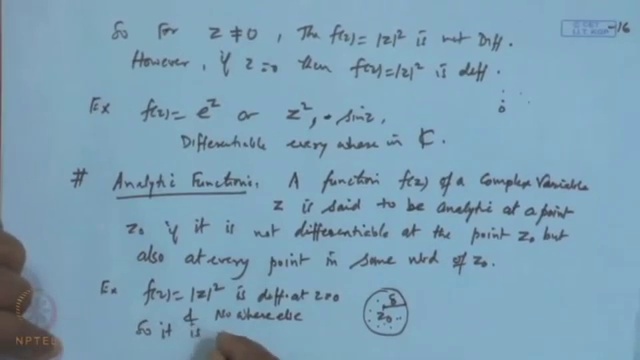 So For z ≠ 0, The f(z) = |z|² is not Diff.
However, if z = 0 then f(z) = |z|² is diff.
Ex f(z) = e^z or z², sin z,
Differentiable every where in ℂ.
# Analytic Functions. A function f(z) of a Complex Variable
z is said to be analytic at a point
z₀ if it is not differentiable at the point z₀ but
also at every point in some nbd of z₀.
Ex f(z) = |z|² is diff. at z=0
& No where else
So it is
δ
z₀
0
-16
NPTEL